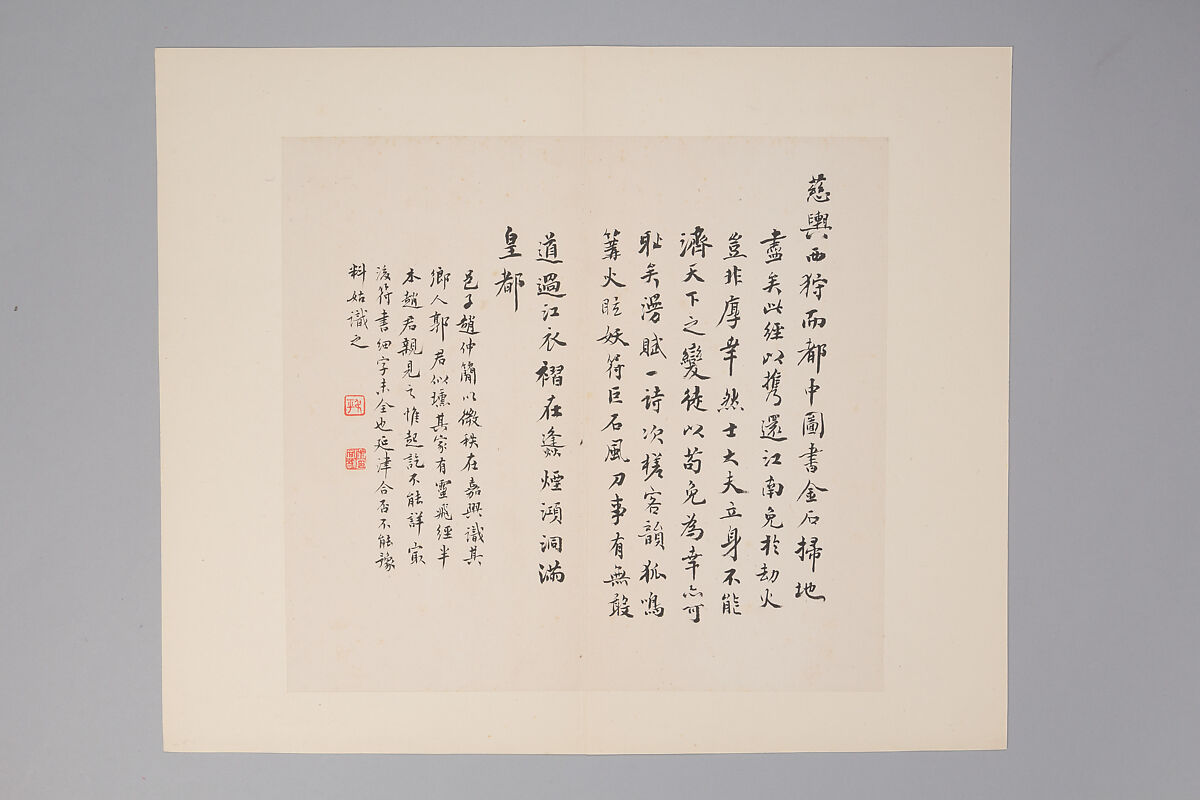 慈輿西狩而都中圖書金石掃地
盡矣此經以攜還江南免於劫火
豈非厚幸然士大夫立身不能
濟天下之變徒以苟免為幸亦可
恥矣漫賦一詩次槎客韻狐鳴
篝火眩妖符巨石風刀事有無敢
道過江衣褶在蓬煙澒洞滿
皇都
邑子趙仲簡以微秩在嘉興識其
鄉人郭君似壎其家有靈飛經半
本趙君親見之惟起訖不能詳最
後符書細字未全也延津合否不能豫
料姑識之